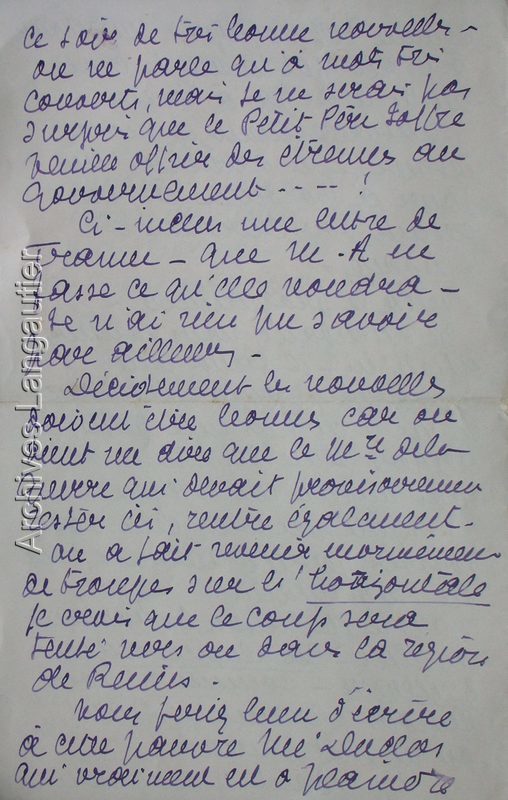 ce soir de très bonnes nouvelles -
on ne parle qu'à mots très
couverts, mais je ne serais pas
surpris que le Petit Père Joffre
vienne offrir des étrennes au
Gouvernement - - - - !
Ci-inclus une lettre de
France - que M. A en
fasse ce qu'elle voudra -
Je n'ai rien pu savoir
par ailleurs -
Décidement les nouvelles
doivent être bonnes car on
vient me dire que le Mre de la
guerre qui devait provisoirement
rester ici, rentre également.
on a fait revenir énormément
de troupes sur l'horizontale
je crois que le coup sera
tenté vers ou dans la région
de Reims.
Vous feriez bien d'écrire
à cette pauvre Me
qui vraiment est à plaindre
Archives Langautier